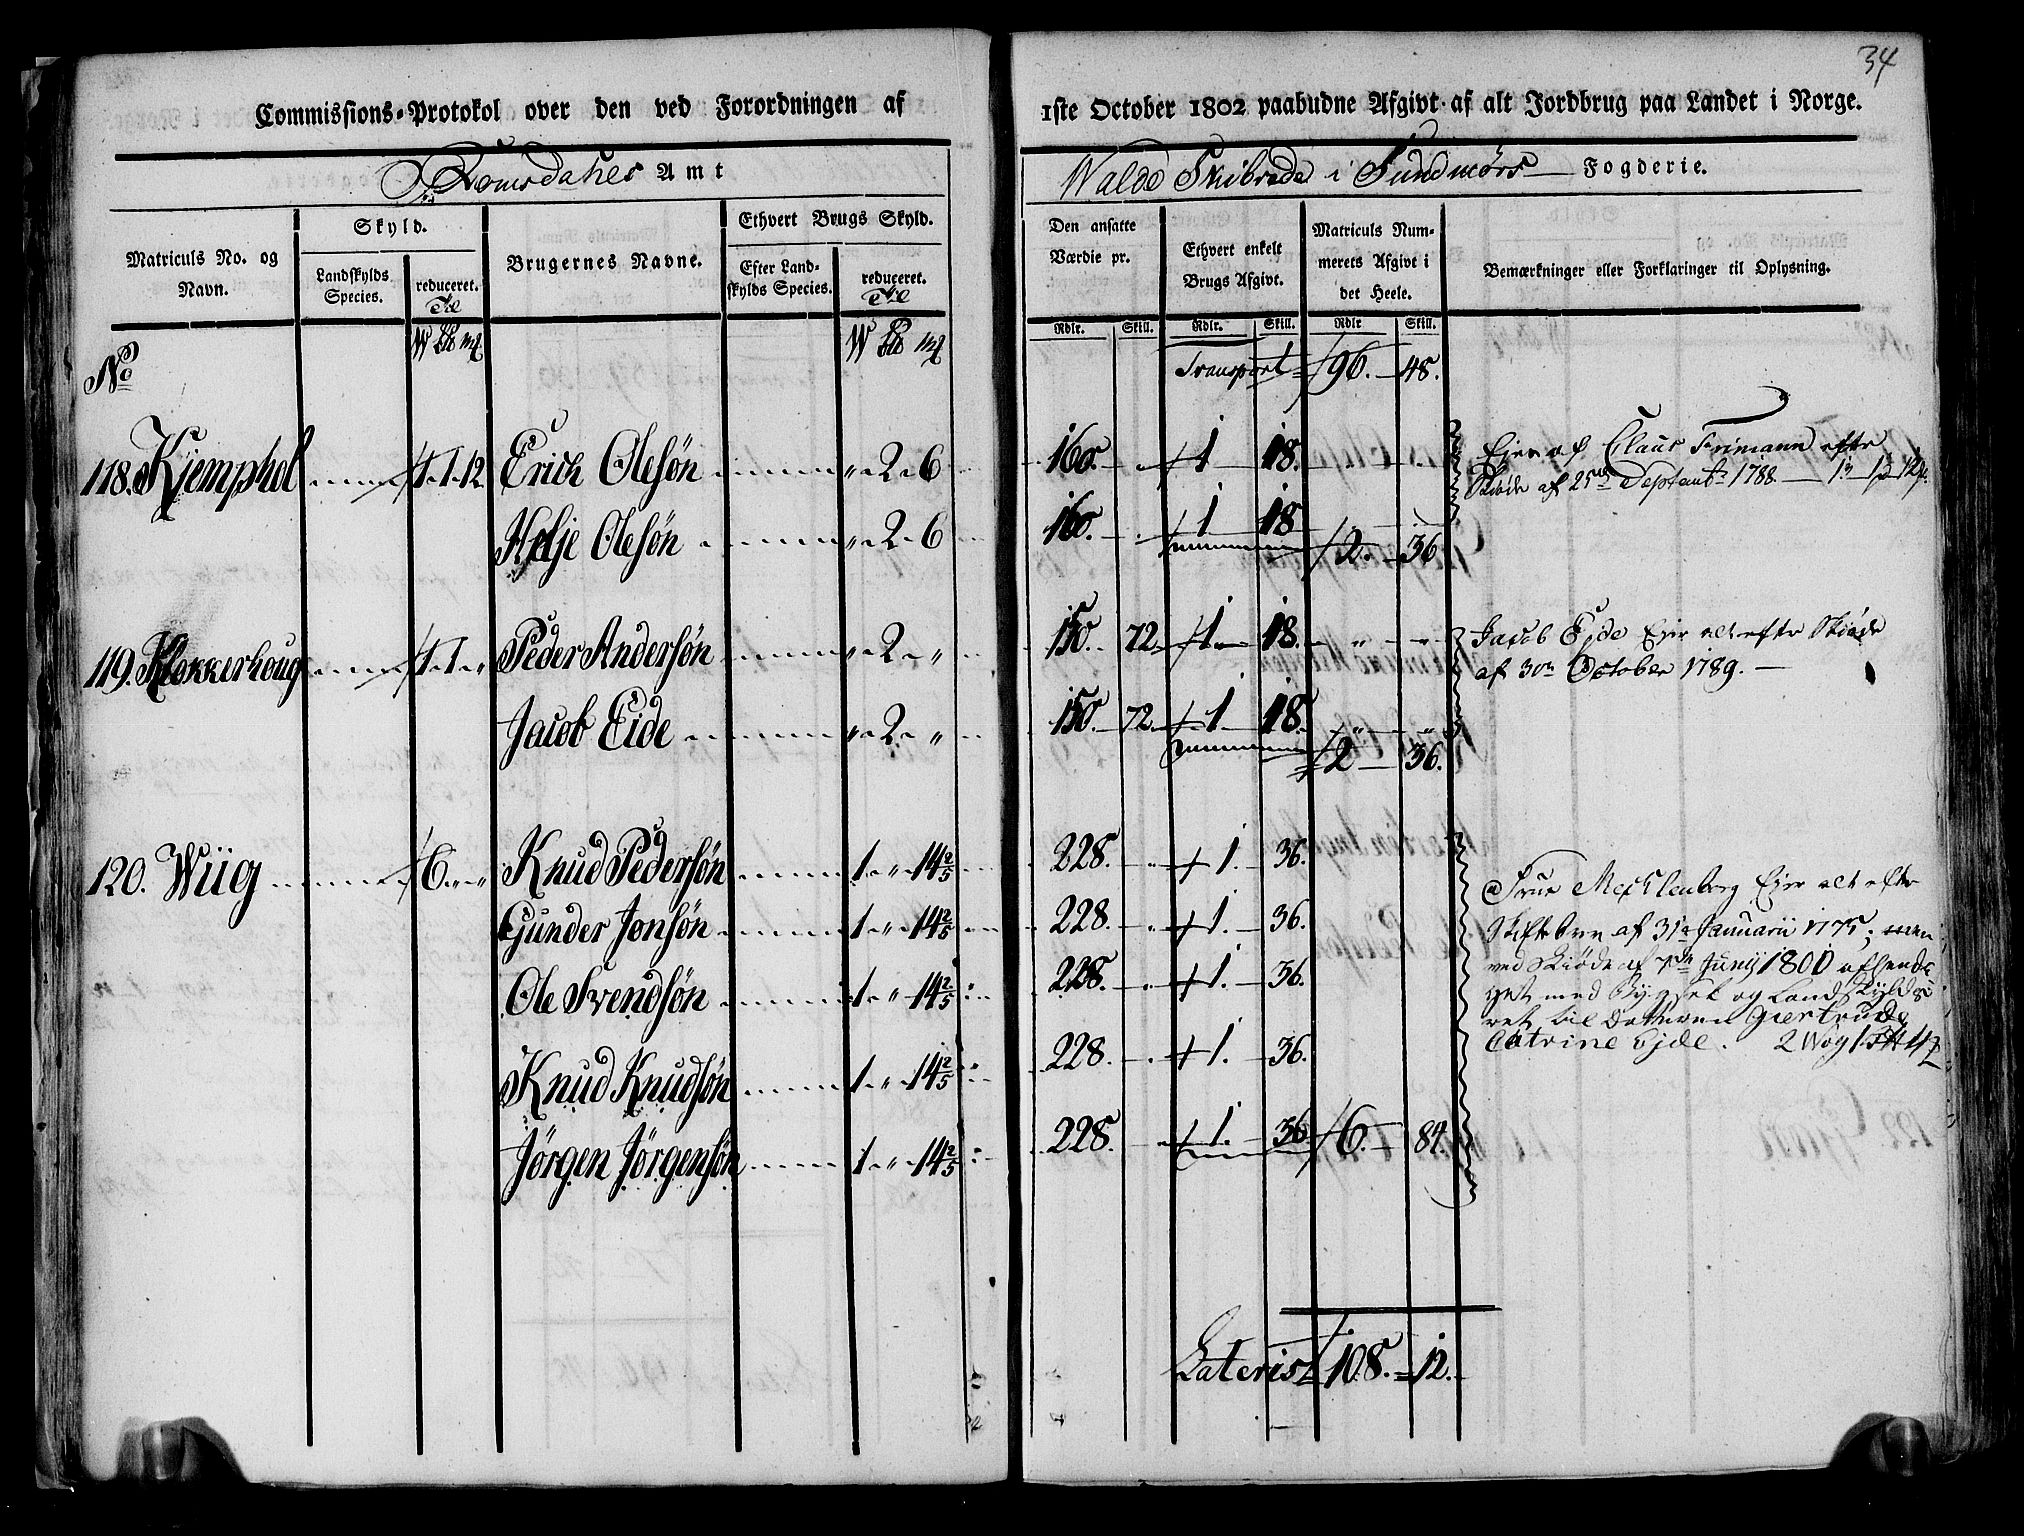 34
Commissions-Protokol over den ved Forordningen af 1ste October 1802 paabudne Afgivt af alt Jordbrug paa Landet i Norge.
Romsdahls Amt
Walde Skibrede i Sundmørs Fogderie.
Matriculs No. og Navn.
Skyld.
Landskylds Species.
reduceret.
Brugernes Navne.
Ethvert Brugs Skyld.
Efter Landskylds Species.
reduceret.
Den ansatte Værdie pr.
Ethvert enkelt Brugs Afgivt.
Matriculs Nummerets Afgivt i det Heele.
Bemærkninger eller Forklaringer til Oplysning.
Rdlr. Skill. Rdlr. Skill. Rdlr Skill.
No
Transport 96. 48.
118. Kjemphol 1 1 12 Erich Olesøn " 2 6 160. 1 18. Ejes af Claus Frimann efter
Skiøde af 25de Septembr 1788.
Helje Olesøn " 2 6 160. 1 18 2. 36
119. Klokkerhoug 1 1 " Peder Andersøn " 2 " 150. 72 1 18 " " Jacob Eide Ejer alt efter Skiøde
af 30te October 1789.
Jacob Eide " 2 " 150. 72 1 18. 2 36.
120. Wiig 6. " " Knud Pedersøn 1 " 14 2/5 228. 1. 36.
Gunder Jonsøn 1 " 14 2/5 228. 1. 36.
Ole Svendsøn 1 " 14 2/5 228. 1. 36.
Knud Knudsøn 1 " 14 2/5 228. 1. 36.
Jørgen Jørgensøn 1 " 14 2/5 228. 1. 36 6. 84.
Frue Mechlenborg Ejer alt efter
Skiftebrev af 31te Januarii 1775; men
ved Skiøde af 7de Junij 1801 afhendet
med Bygsel og Landskylds
ret til Datteren Giertrude
Catrine Ejde. 2 Wog 1
Lateris 108. 12.